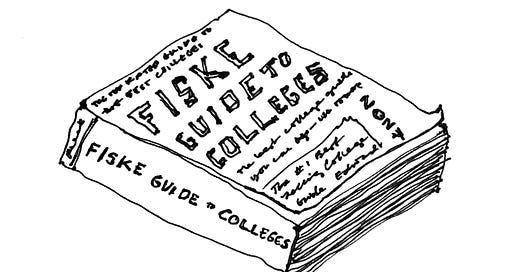 THE TOP RATED GUIDE TO
THE BEST COLLEGES
FISKE
GUIDE TO
COLLEGES
The best college guide
you can buy - USA TODAY
The #1 Best
Selling College
Guide
FISKE GUIDE TO COLLEGES